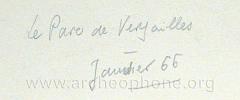 Le Parc de Versailles
—
Janvier 66
www.archeophone.org